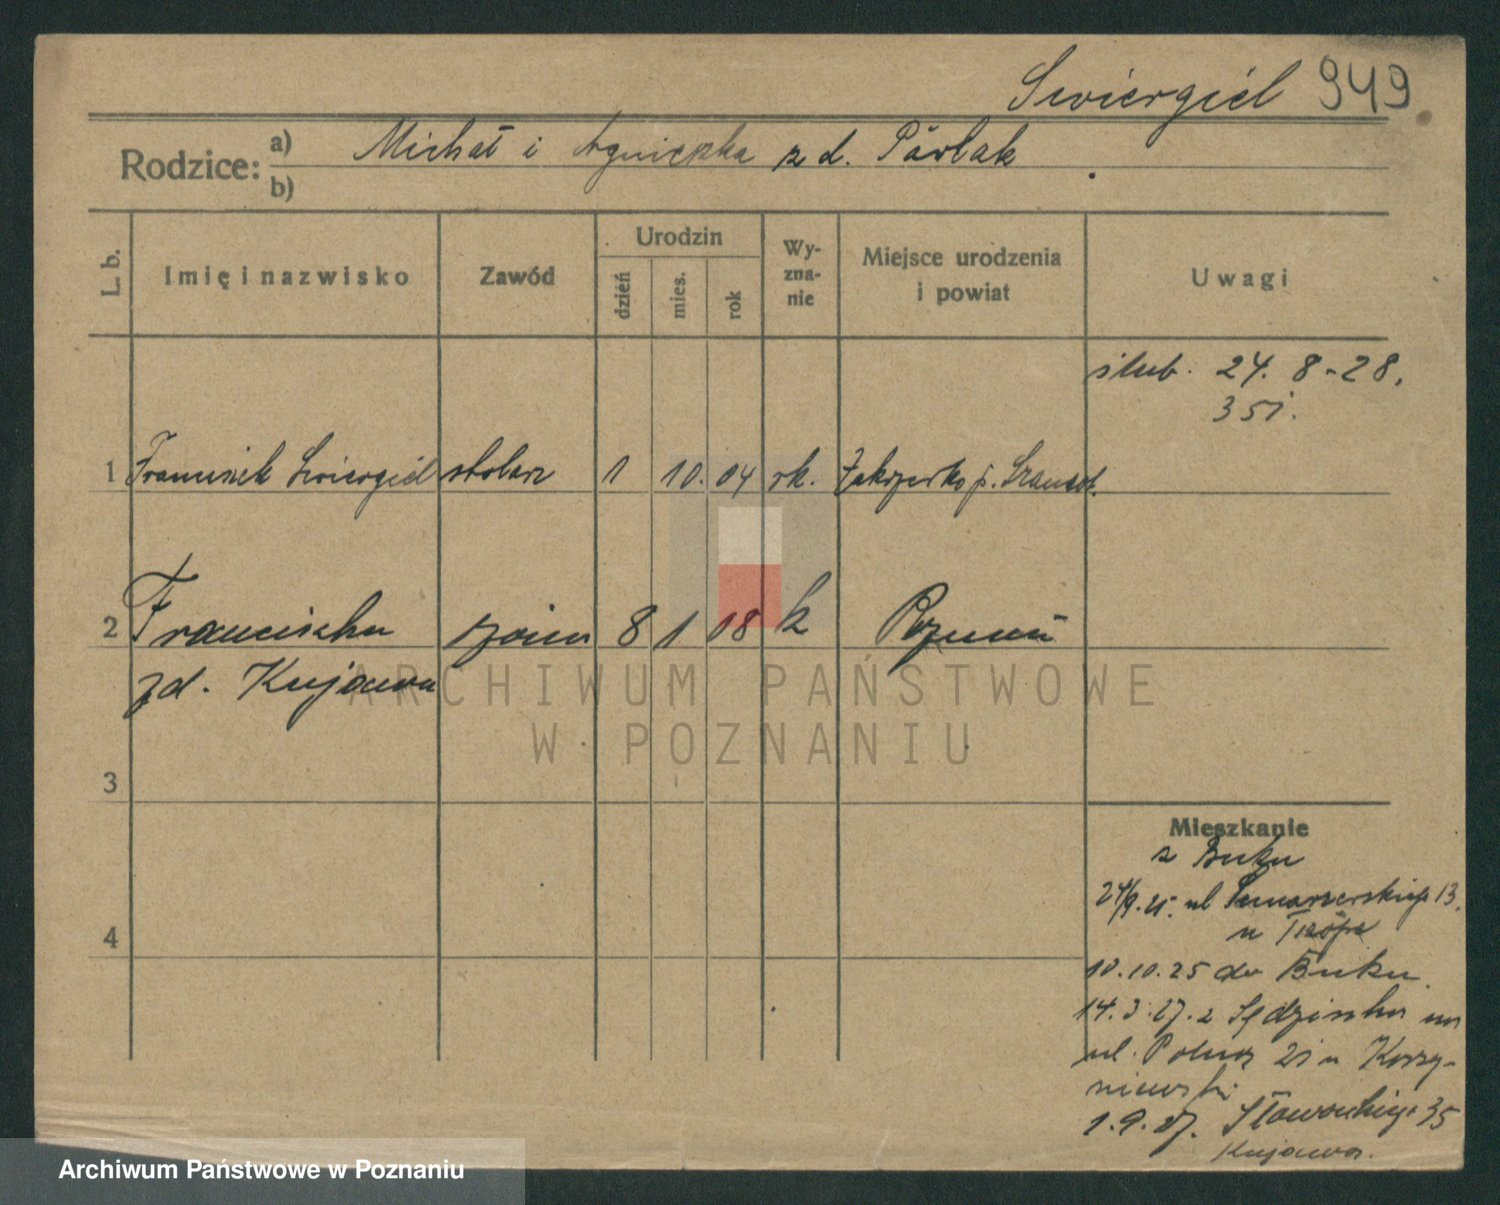 Swiergiel 949
Rodzice: a) Michał i Agnieszka z d. Pawlak
b)
L. b.
Imię i nazwisko
Zawód
Urodzin
dzień
mies.
rok
Wy-
zna-
nie
Miejsce urodzenia
i powiat
Uwagi
ślub. 24. 8-28.
351.
1 Franciszek Swiergiel stolarz 1 10. 04 rk. p. Szamot.
2 Franciszka żona 8 1 08 k Poznań
zd. Kujawa
3
4
Mieszkanie
z Buku
24/9. 25. ul 13.
u
10.10.25 do Buku.
14. 3. 27. z Sędzinka na
ul. Polna 21 u
1. 9. 27. Słowackiego 35
Kujawa.
ARCHIWUM PAŃSTWOWE
W POZNANIU
Archiwum Państwowe w Poznaniu